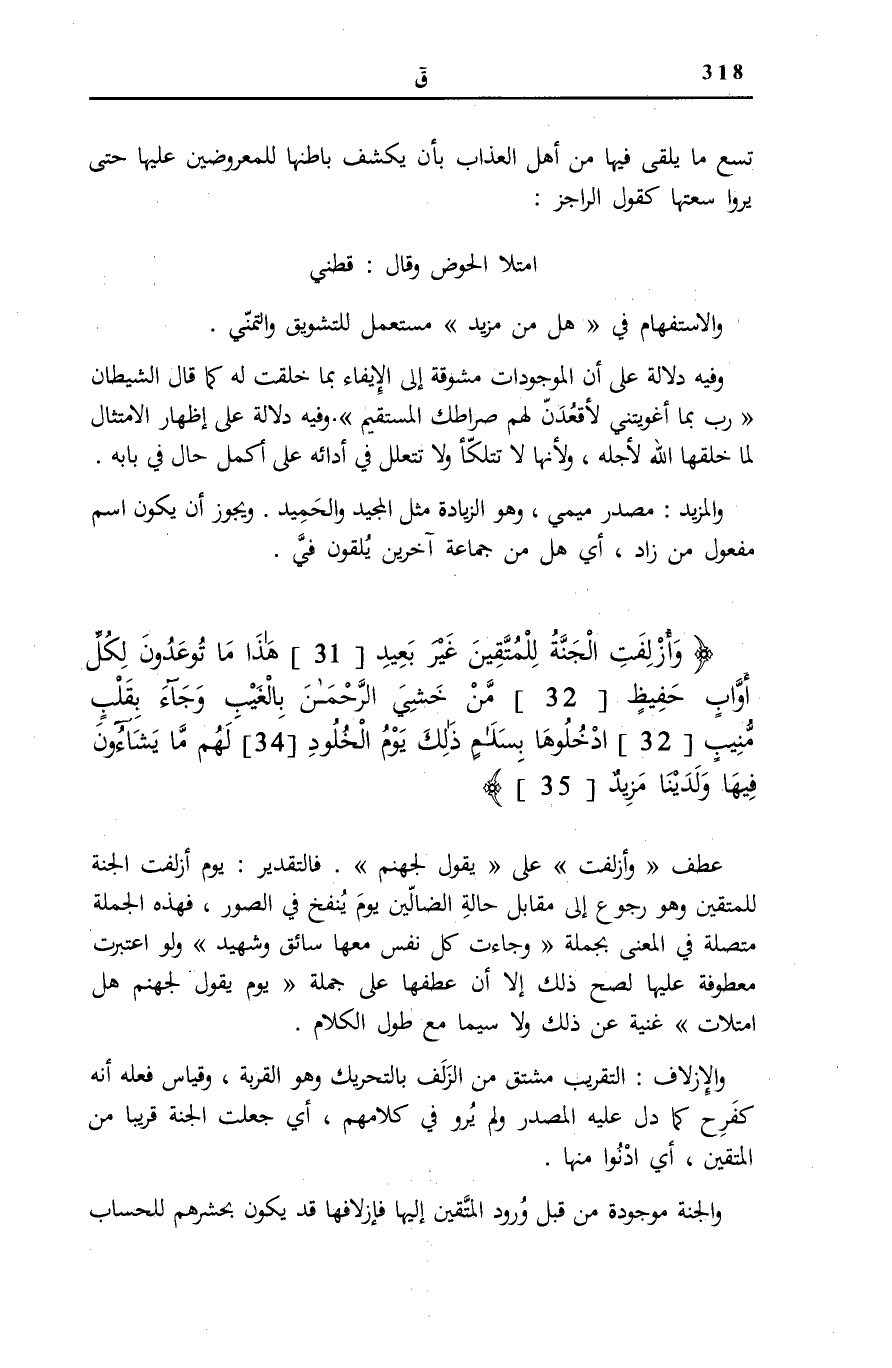 318
قٓ
تسع ما يلقى فيها من أهل العذاب بأن يكشف باطنها للمعروضين عليها حتى
يروا سعتها كقول الراجز :
امتلا الحوض وقال : قطني
والاستفهام في « هل من مزيد » مستعمل للتشويق والتمنّي .
وفيه دلالة على أن الموجودات مشوقة إلى الإيفاء بما خلقت له كما قال الشيطان
« رب بما أغويتني لأقعُدَنّ لهم صراطك المستقيم ».وفيه دلالة على إظهار الامتثال
لما خلقها الله لأجله ، ولأنها لا تتلكّأ ولا تتعلل في أدائه على أكمل حال في بابه .
والمزيد : مصدر ميمي ، وهو الزيادة مثل المجيد والحَمِيد . ويجوز أن يكون اسم
مفعول من زاد ، أي هل من جماعة آخرين يُلقون فيَّ .
﴿ وَأُزْلِفَتِ الْجَنَّةُ لِلْمُتَّقِينَ غَيْرَ بَعِيدٍ [ 31 ] هَٰذَا مَا تُوعَدُونَ لِكُلِّ
أَوَّابٍ حَفِيظٍ [ 32 ] مَّنْ خَشِيَ الرَّحْمَـٰنَ بِالْغَيْبِ وَجَآءَ بِقَلْبٍ
مُّنِيبٍ [ 32 ] ادْخُلُوهَا بِسَلَـٰمٍ ذَٰلِكَ يَوْمُ الْخُلُودِ [34] لَهُم مَّا يَشَآءُونَ
فِيهَا وَلَدَيْنَا مَزِيدٌ [ 35 ] ﴾
عطف « وأزلفت » على « يقول لجهنم » . فالتقدير : يوم أزلفت الجنة
للمتقين وهو رجوع إلى مقابل حالةِ الضالّين يومَ يُنفخ في الصور ، فهذه الجملة
متصلة في المعنى بجملة « وجاءت كل نفس معها سائق وشهيد » ولو اعتبرت
معطوفة عليها لصح ذلك إلا أن عطفها على جملة « يوم يقول لجهنم هل
امتلات » غنية عن ذلك ولا سيما مع طول الكلام .
والإزلاف : التقريب مشتق من الزَلَف بالتحريك وهو القربة ، وقياس فعله أنه
كفَرِح كما دل عليه المصدر ولم يُرو في كلامهم ، أي جعلت الجنة قريبا من
المتقين ، أي ادْنُوا منها .
والجنة موجودة من قبل وُرود المتَّقين إليها فإزلافها قد يكون بحشرهم للحساب